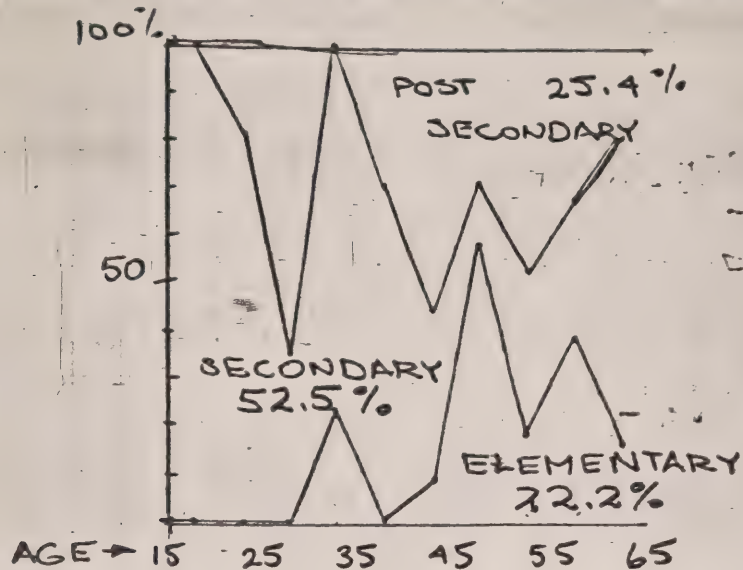 100%
POST 25.4%
SECONDARY
50
SECONDARY
52.5%
ELEMENTARY
22.2%
AGE → 15 25 35 45 55 65